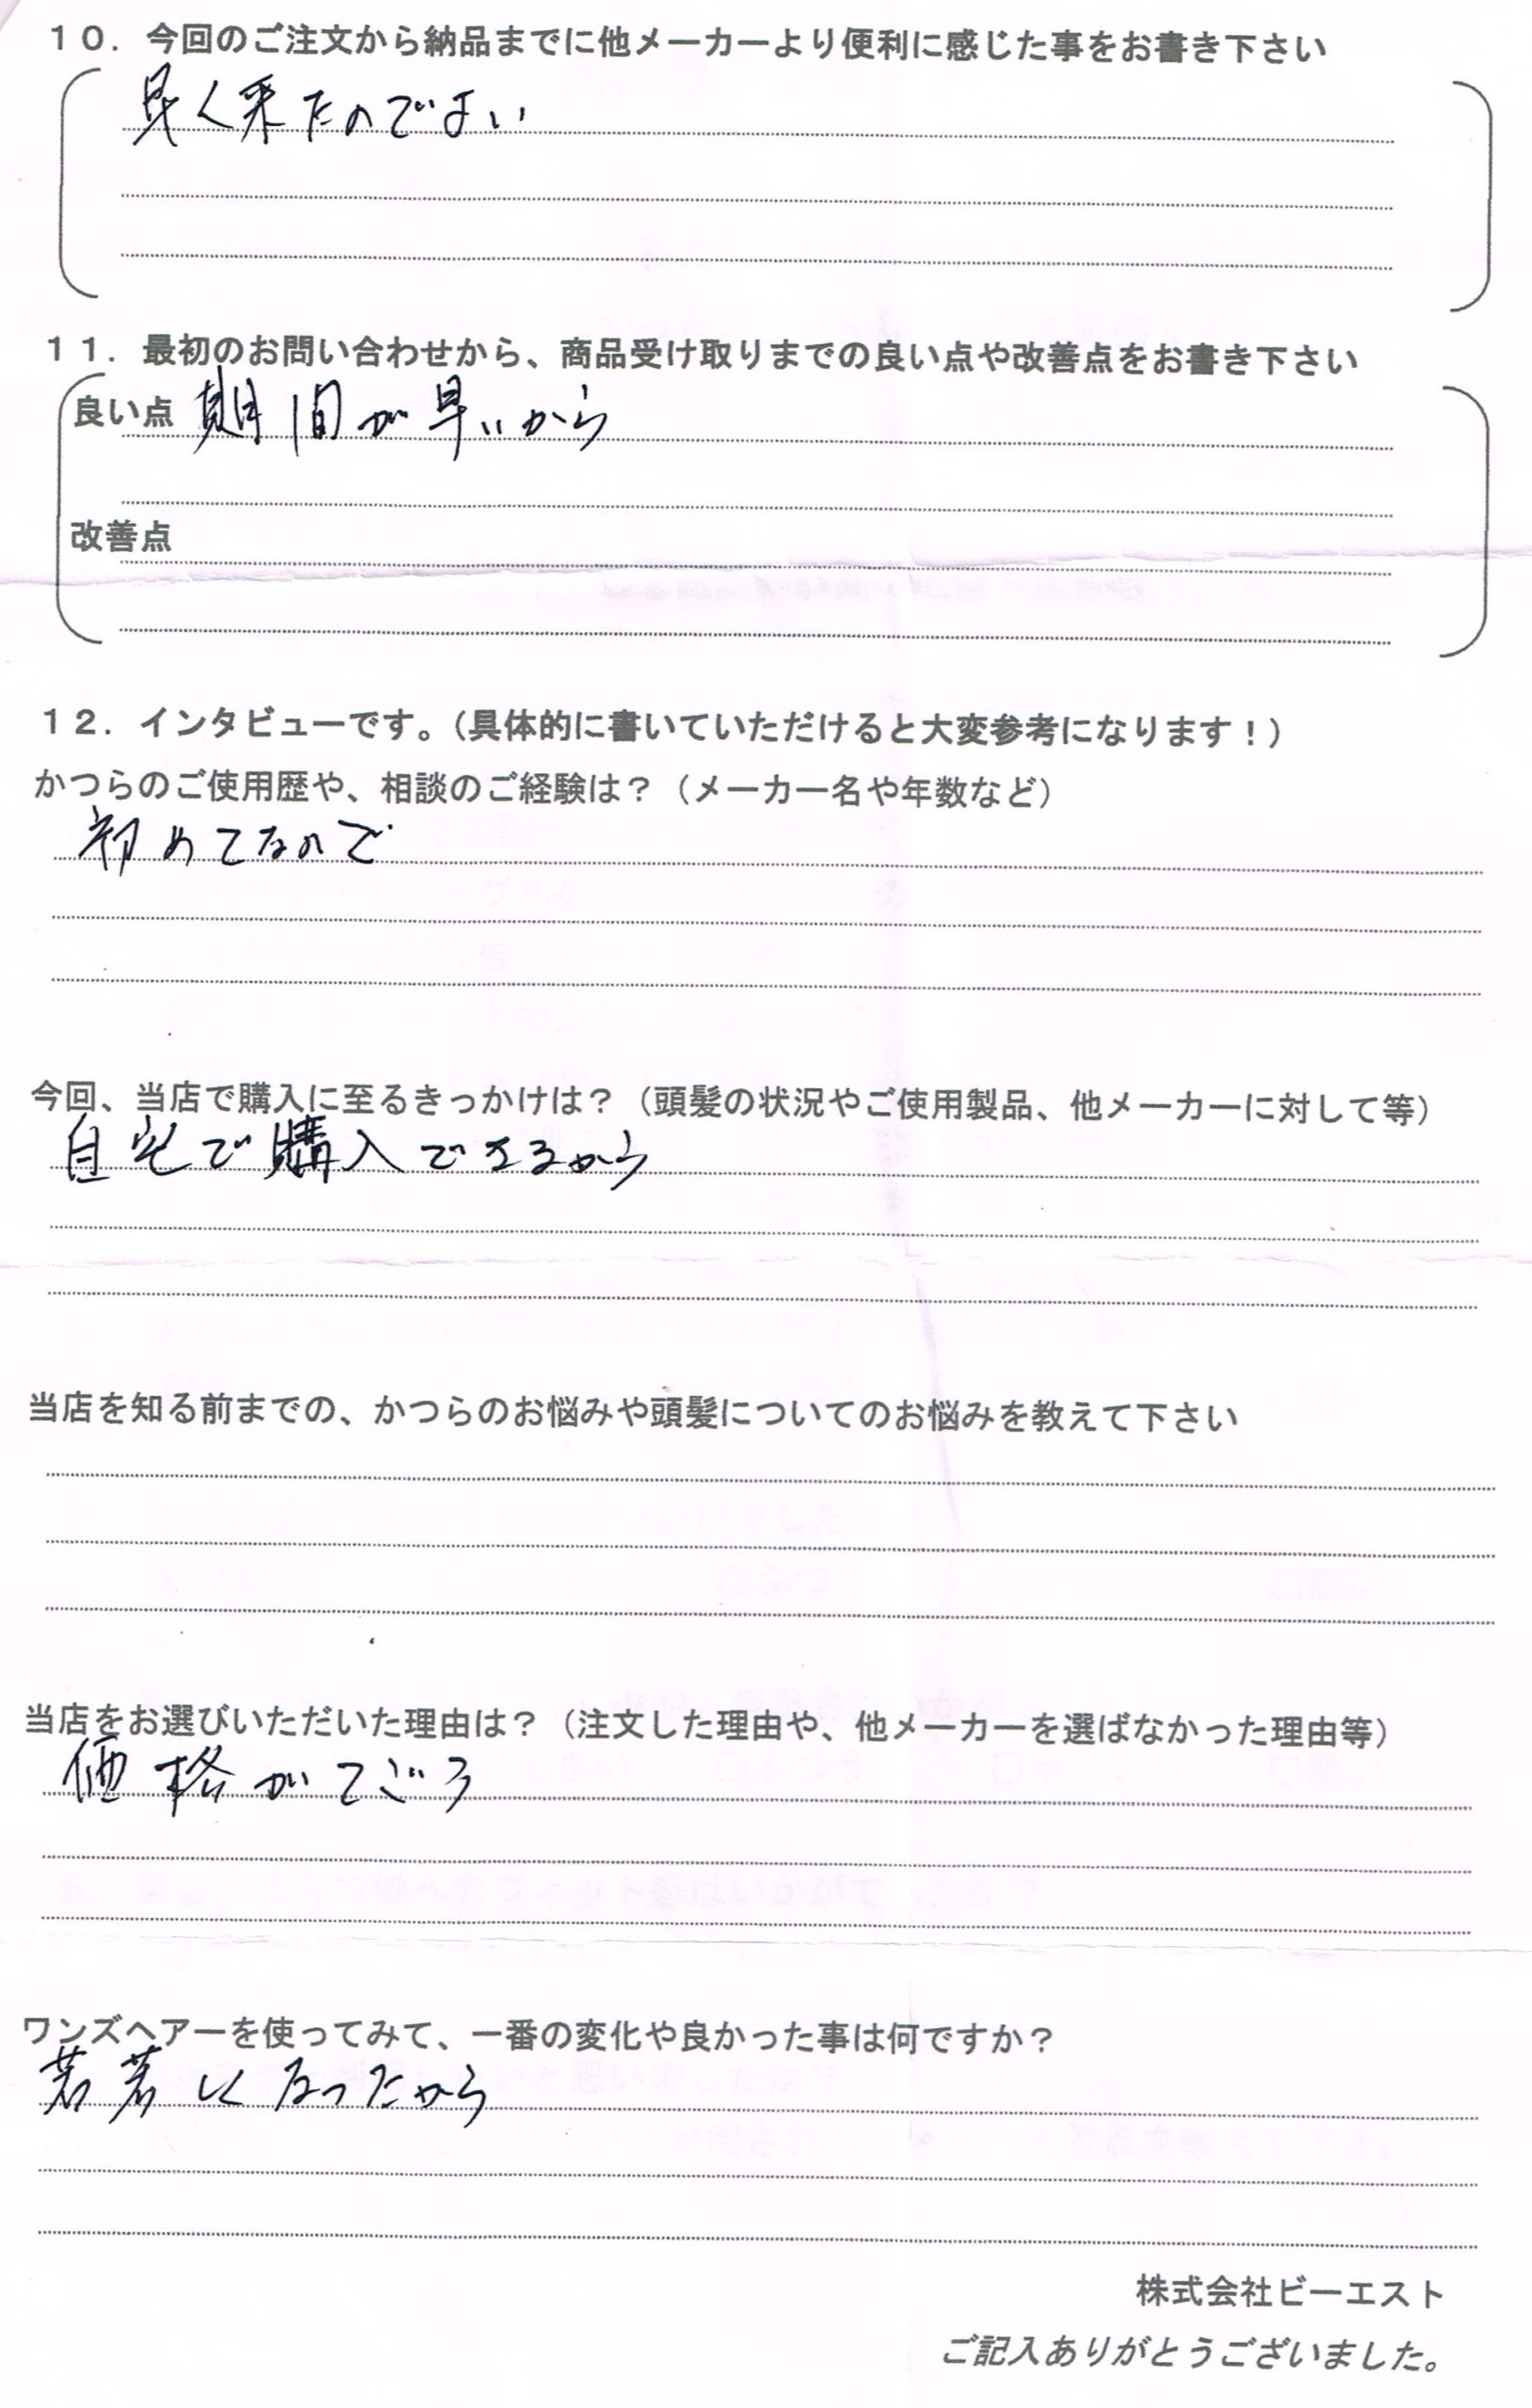 10. 今回のご注文から納品までに他メーカーより便利に感じた事をお書き下さい
早く来たのでよい
11. 最初のお問い合わせから、商品受け取りまでの良い点や改善点をお書き下さい
良い点 期間が早いから
改善点
12. インタビューです。（具体的に書いていただけると大変参考になります！）
かつらのご使用歴や、相談のご経験は？（メーカー名や年数など）
初めてなので
今回、当店で購入に至るきっかけは？（頭髪の状況やご使用製品、他メーカーに対して等）
自宅で購入できるから
当店を知る前までの、かつらのお悩みや頭髪についてのお悩みを教えて下さい
当店をお選びいただいた理由は？（注文した理由や、他メーカーを選ばなかった理由等）
価格がてごろ
ワンズヘアーを使ってみて、一番の変化や良かった事は何ですか？
若若しくなったから
株式会社ビーエスト
ご記入ありがとうございました。